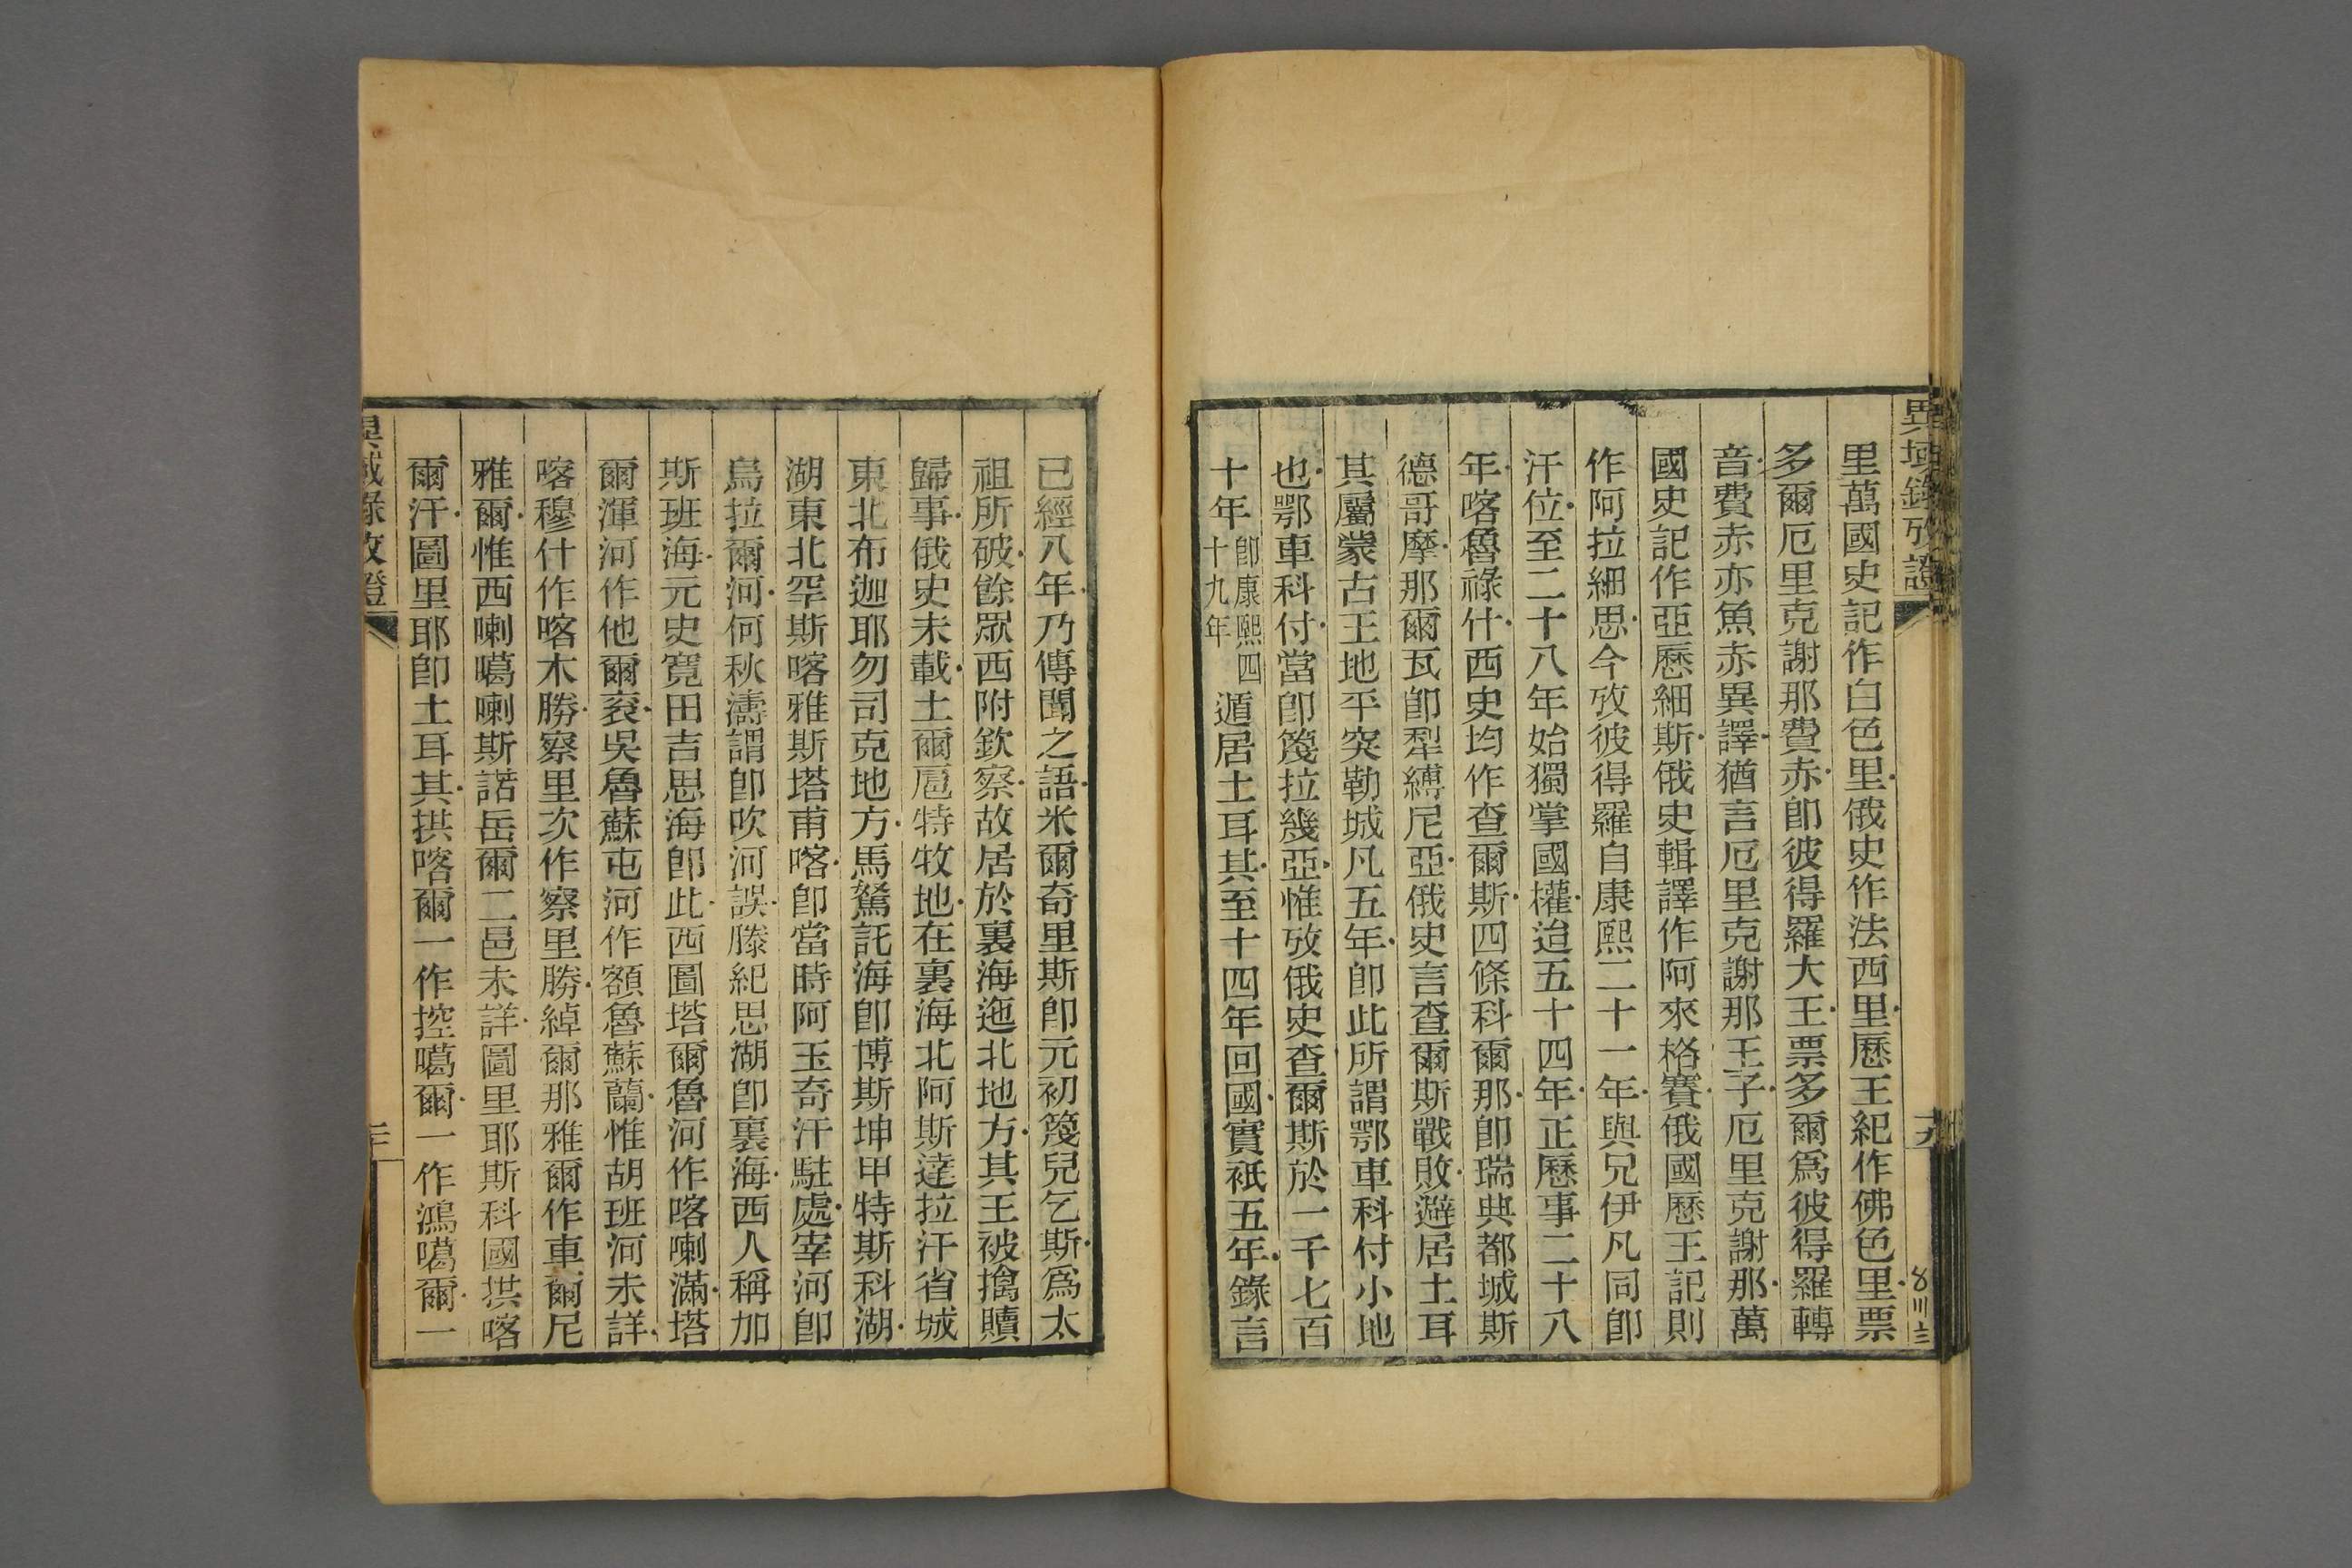 異域錄攷證
十九
里萬國史記作白色里俄史作法西里歷王紀作佛色里票
多爾厄里克謝那費赤卽彼得羅大王票多爾爲彼得羅轉
音費赤亦魚赤異譯猶言厄里克謝那王子厄里克謝那萬
國史記作亞歷細斯俄史輯譯作阿來格賽俄國歷王記則
作阿拉細思今攷彼得羅自康熙二十一年與兄伊凡同卽
汗位至二十八年始獨掌國權迨五十四年正歷事二十八
年喀魯祿什西史均作查爾斯四條科爾那卽瑞典都城斯
德哥摩那爾瓦卽犁縛尼亞俄史言查爾斯戰敗避居土耳
其屬蒙古王地平突勒城凡五年卽此所謂鄂車科付小地
也鄂車科付當卽篾拉幾亞惟攷俄史查爾斯於一千七百
十年卽康熙四十九年遁居土耳其至十四年回國實祇五年錄言
已經八年乃傳聞之語米爾奇里斯卽元初篾兒乞斯爲太
祖所破餘眾西附欽察故居於裏海迤北地方其王被擒贖
歸事俄史未載土爾扈特牧地在裏海北阿斯達拉汗省城
東北布迦耶勿司克地方馬駑託海卽博斯坤甲特斯科湖
湖東北罕斯喀雅斯塔甫喀卽當時阿玉奇汗駐處宰河卽
烏拉爾河何秋濤謂卽吹河誤滕紀思湖卽裏海西人稱加
斯班海元史寬田吉思海卽此西圖塔爾魯河作喀喇滿塔
爾渾河作他爾袞吳魯蘇屯河作額魯蘇蘭惟胡班河未詳
喀穆什作喀木勝察里次作察里勝綽爾那雅爾作車爾尼
雅爾惟西喇噶喇斯諾岳爾二邑未詳圖里耶斯科國拱喀
爾汗圖里耶卽土耳其拱喀爾一作控噶爾一作鴻噶爾一
異域錄攷證
二十